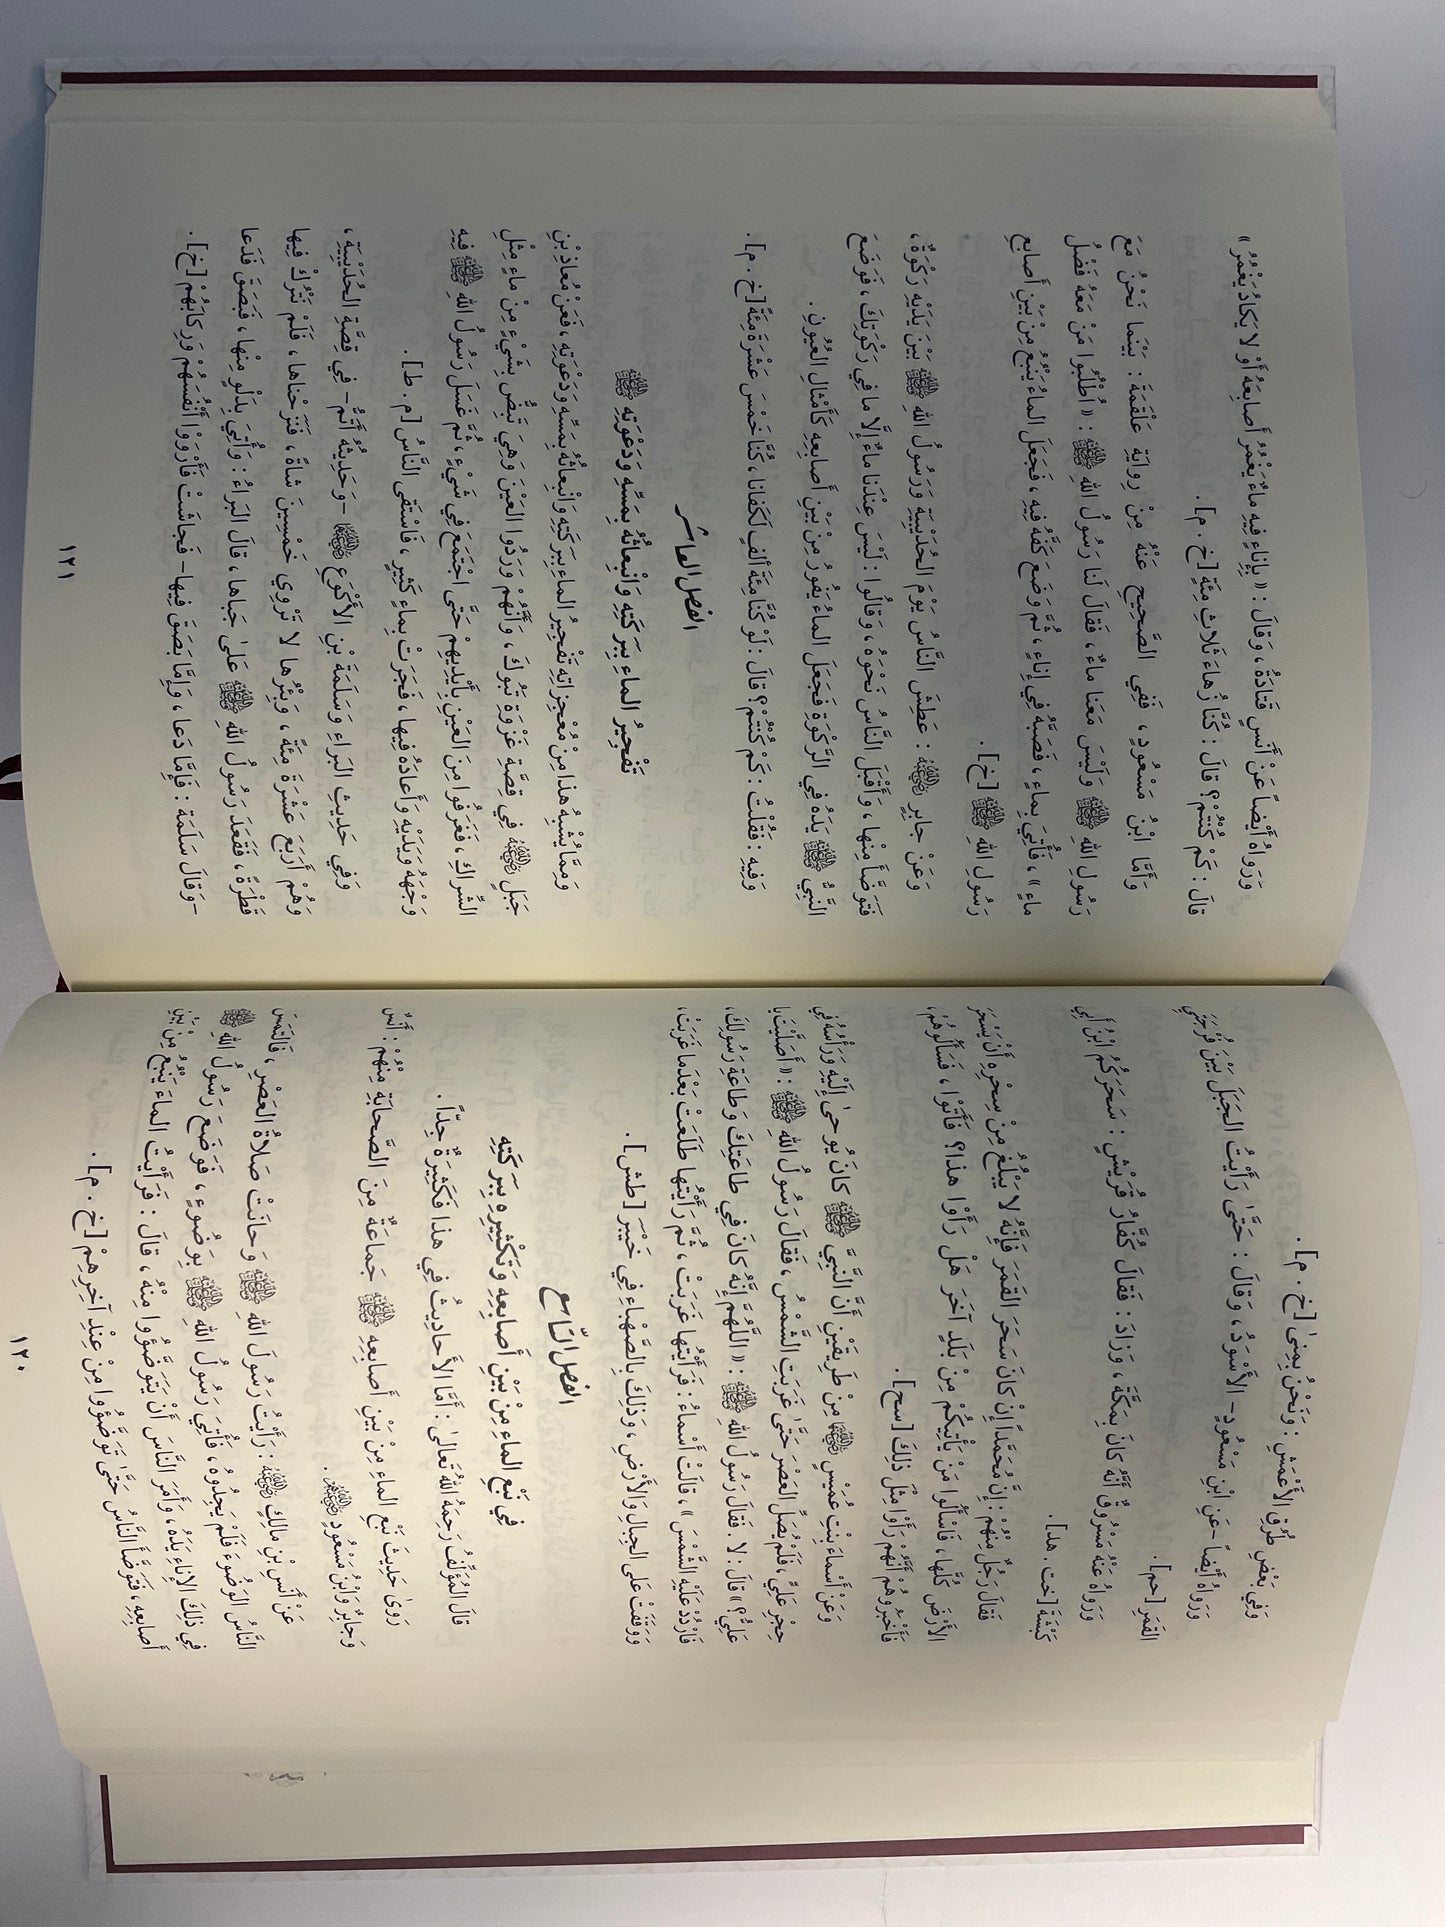 وَفِي بَعْضِ طُرُقِ الأَعْمَشِ : وَنَحْنُ بِمِنىٰ [خ . م] .
وَرَوَاهُ أَيْضاً -عَنِ ابْنِ مَسْعُودٍ- الأَسْوَدُ، وَقَالَ : حَتَّىٰ رَأَيْتُ الجَبَلَ بَيْنَ فُرْجَتَيِ
القَمَرِ [حم] .
وَرَوَاهُ عَنْهُ مَسْرُوقٌ أَنَّهُ كَانَ بِمَكَّةَ، وَزَادَ : فَقالَ كُفَّارُ قُرَيْشٍ : سَحَرَكُمُ ابْنُ أَبِي
كَبْشَةَ [خت . هد] .
فَقالَ رَجُلٌ مِنْهُمْ : إِنَّ مُحَمَّداً إِنْ كَانَ سَحَرَ القَمَرَ فَإِنَّهُ لا يَبْلُغُ مِنْ سِحْرِهِ أَنْ يَسْحَرَ
الأَرْضَ كُلَّها، فَاسْأَلُوا مَنْ يَأْتِيكُمْ مِنْ بَلَدٍ آخَرَ هَلْ رَأَوْا هذا؟ فَأَتَوْا، فَسَأَلُوهُمْ،
فَأَخْبَرُوهُمْ أَنَّهُمْ رَأَوْا مِثْلَ ذلِكَ [سح] .
وَعَنْ أَسْماءَ بِنْتِ عُمَيْسٍ ﵂ مِنْ طَرِيقَيْنِ أَنَّ النَّبِيَّ ﷺ كانَ يُوحىٰ إِلَيْهِ وَرَأْسُهُ فِي
حِجْرِ عَلِيٍّ، فَلَمْ يُصَلِّ العَصْرَ حَتَّىٰ غَرَبَتِ الشَّمْسُ، فَقالَ رَسُولُ اللهِ ﷺ : « أَصَلَّيْتَ يا
عَلِيُّ؟ » قالَ : لا . فَقالَ رَسُولُ اللهِ ﷺ : « اللَّهُمَّ إِنَّهُ كانَ فِي طاعَتِكَ وَطاعَةِ رَسُولِكَ،
فَارْدُدْ عَلَيْهِ الشَّمْسَ »، قالَتْ أَسْماءُ : فَرَأَيْتُها غَرَبَتْ، ثُمَّ رَأَيْتُها طَلَعَتْ بَعْدَما غَرَبَتْ،
وَوَقَفَتْ عَلَى الجِبالِ وَالأَرْضِ، وَذلِكَ بِالصَّهْباءِ فِي خَيْبَرَ [طش] .
الفصل التاسع
فِي نَبْعِ الماءِ مِنْ بَيْنِ أَصابِعِهِ وَتَكْثِيرِهِ بِبَرَكَتِهِ
قالَ المُؤَلِّفُ رَحِمَهُ اللهُ تَعالىٰ : أَمَّا الأَحادِيثُ فِي هذا فَكَثِيرَةٌ جِدّاً .
رَوىٰ حَدِيثَ نَبْعِ الماءِ مِنْ بَيْنِ أَصابِعِهِ ﷺ جَماعَةٌ مِنَ الصَّحابَةِ مِنْهُمْ : أَنَسٌ
وَجابِرٌ وَابْنُ مَسْعُودٍ ﵃ .
عَنْ أَنَسِ بْنِ مالِكٍ ﵁ : رَأَيْتُ رَسُولَ اللهِ ﷺ وَحانَتْ صَلاةُ العَصْرِ، فَالْتَمَسَ
النَّاسُ الوَضُوءَ فَلَمْ يَجِدُوهُ، فَأُتِيَ رَسُولُ اللهِ ﷺ بِوَضُوءٍ، فَوَضَعَ رَسُولُ اللهِ ﷺ
فِي ذلِكَ الإِناءِ يَدَهُ، وَأَمَرَ النَّاسَ أَنْ يَتَوَضَّؤُوا مِنْهُ، قالَ : فَرَأَيْتُ الماءَ يَنْبُعُ مِنْ بَيْنِ
أَصابِعِهِ، فَتَوَضَّأَ النَّاسُ حَتَّىٰ تَوَضَّؤُوا مِنْ عِنْدِ آخِرِهِمْ [خ . م] .
١٢٠
وَرَواهُ أَيْضاً عَنْ أَنَسٍ قَتادَةُ، وَقالَ : « بِإِناءٍ فِيهِ ماءٌ يَغْمُرُ أَصابِعَهُ أَوْ لا يَكادُ يَغْمُرُ »
قالَ : كَمْ كُنْتُمْ؟ قالَ : كُنَّا زُهاءَ ثَلاثِ مِئَةٍ [خ . م] .
وَأَمَّا ابْنُ مَسْعُودٍ، فَفِي الصَّحِيحِ عَنْهُ مِنْ رِوايَةِ عَلْقَمَةَ : بَيْنَما نَحْنُ مَعَ
رَسُولِ اللهِ ﷺ وَلَيْسَ مَعَنا ماءٌ، فَقالَ لَنا رَسُولُ اللهِ ﷺ : « اُطْلُبُوا مَنْ مَعَهُ فَضْلُ
ماءٍ »، فَأُتِيَ بِماءٍ، فَصَبَّهُ فِي إِناءٍ، ثُمَّ وَضَعَ كَفَّهُ فِيهِ، فَجَعَلَ الماءُ يَنْبُعُ مِنْ بَيْنِ أَصابِعِ
رَسُولِ اللهِ ﷺ [خ] .
وَعَنْ جابِرٍ ﵁ : عَطِشَ النَّاسُ يَوْمَ الحُدَيْبِيَةِ وَرَسُولُ اللهِ ﷺ بَيْنَ يَدَيْهِ رَكْوَةٌ،
فَتَوَضَّأَ مِنْها، وَأَقْبَلَ النَّاسُ نَحْوَهُ، وَقالُوا : لَيْسَ عِنْدَنا ماءٌ إِلَّا ما فِي رَكْوَتِكَ، فَوَضَعَ
النَّبِيُّ ﷺ يَدَهُ فِي الرَّكْوَةِ فَجَعَلَ الماءُ يَفُورُ مِنْ بَيْنِ أَصابِعِهِ كَأَمْثالِ العُيُونِ .
وَفِيهِ : فَقُلْتُ : كَمْ كُنْتُمْ؟ قالَ : لَوْ كُنَّا مِئَةَ أَلْفٍ لَكَفانا، كُنَّا خَمْسَ عَشْرَةَ مِئَةً [خ . م] .
الفصل العاشر
تَفْجِيرُ الماءِ بِبَرَكَتِهِ وَانْبِعاثُهُ بِمَسِّهِ وَدَعْوَتِهِ ﷺ
وَمِمَّا يُشْبِهُ هذا مِنْ مُعْجِزاتِهِ تَفْجِيرُ الماءِ بِبَرَكَتِهِ وَانْبِعاثُهُ بِمَسِّهِ وَدَعْوَتِهِ، فَعَنْ مُعاذِ بْنِ
جَبَلٍ ﵁ فِي قِصَّةِ غَزْوَةِ تَبُوكَ، وَأَنَّهُمْ وَرَدُوا العَيْنَ وَهِيَ تَبِضُّ بِشَيْءٍ مِنْ ماءٍ مِثْلِ
الشِّراكِ، فَغَرَفُوا مِنَ العَيْنِ بِأَيْدِيهِمْ حَتَّى اجْتَمَعَ فِي شَيْءٍ، ثُمَّ غَسَلَ رَسُولُ اللهِ ﷺ فِيهِ
وَجْهَهُ وَيَدَيْهِ وَأَعادَهُ فِيها، فَجَرَتْ بِماءٍ كَثِيرٍ، فَاسْتَقَى النَّاسُ [م . ط] .
وَفِي حَدِيثِ البَراءِ وَسَلَمَةَ بْنِ الأَكْوَعِ ﵄ -وَحَدِيثُهُ أَتَمُّ- فِي قِصَّةِ الحُدَيْبِيَةِ،
وَهُمْ أَرْبَعَ عَشْرَةَ مِئَةً، وَبِئْرُها لا تَرْوِي خَمْسِينَ شاةً، فَنَزَحْناها، فَلَمْ نَتْرُكْ فِيها
قَطْرَةً، فَقَعَدَ رَسُولُ اللهِ ﷺ عَلىٰ جَباها، قالَ البَراءُ : وَأُتِيَ بِدَلْوٍ مِنْها، فَبَصَقَ فَدَعا
-وَقالَ سَلَمَةُ : فَإِمَّا دَعا، وَإِمَّا بَصَقَ فِيها- فَجاشَتْ فَأَرْوَوْا أَنْفُسَهُمْ وَرِكابَهُمْ [خ] .
١٢١